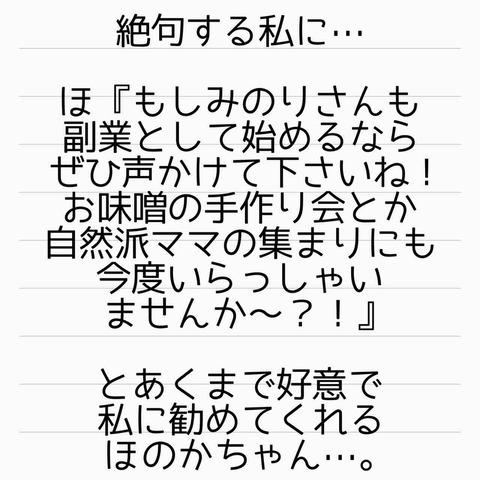 絶句する私に…
ほ『もしみのりさんも
副業として始めるなら
ぜひ声かけて下さいね！
お味噌の手作り会とか
自然派ママの集まりにも
今度いらっしゃい
ませんか〜？！』
とあくまで好意で
私に勧めてくれる
ほのかちゃん…。